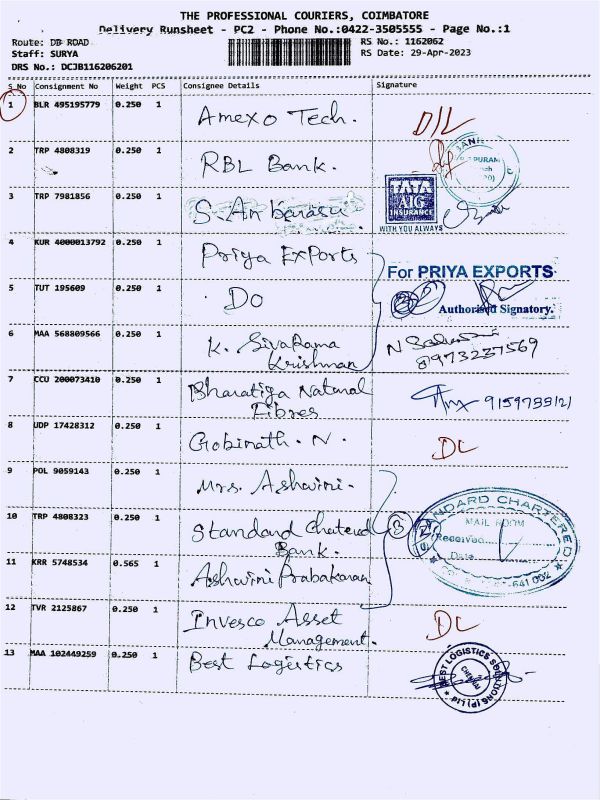 THE PROFESSIONAL COURIERS, COIMBATORE
Delivery Runsheet - PC2 - Phone No.:0422-3505555 - Page No.:1
Route: DB ROAD
RS No.: 1162062
Staff: SURYA
RS Date: 29-Apr-2023
DRS No.: DCJB116206201
S No Consignment No Weight PCS Consignee Details Signature
1 BLR 495195779 0.250 1 Amexo Tech. D/L
2 TRP 4808319 0.250 1 RBL Bank.
3 TRP 7981856 0.250 1 S. Anbarasu
TATA
AIG
INSURANCE
WITH YOU ALWAYS
4 KUR 4000013792 0.250 1 Priya Exports
For PRIYA EXPORTS
5 TUT 195609 0.250 1 Do
Authorised Signatory.
6 MAA 568809566 0.250 1 K. SivaRama
Krishnan
8973237569
7 CCU 200073410 0.250 1 Bharatiya Natural
Fibres
8 UDP 17428312 0.250 1 Gobinath. N. DL
9 POL 9059143 0.250 1 Mrs. Ashwini.
10 TRP 4808323 0.250 1 Standard Chaterd
Bank.
3
CHARTERED
MAIL ROOM
Received
Date
641 002
11 KRR 5748534 0.565 1 Ashwini Prabakaran
12 TVR 2125867 0.250 1 Invesco Asset
Management.
DL
13 MAA 102449259 0.250 1 Best Logistics
BEST LOGISTICS SOLUTIONS
CHENNAI